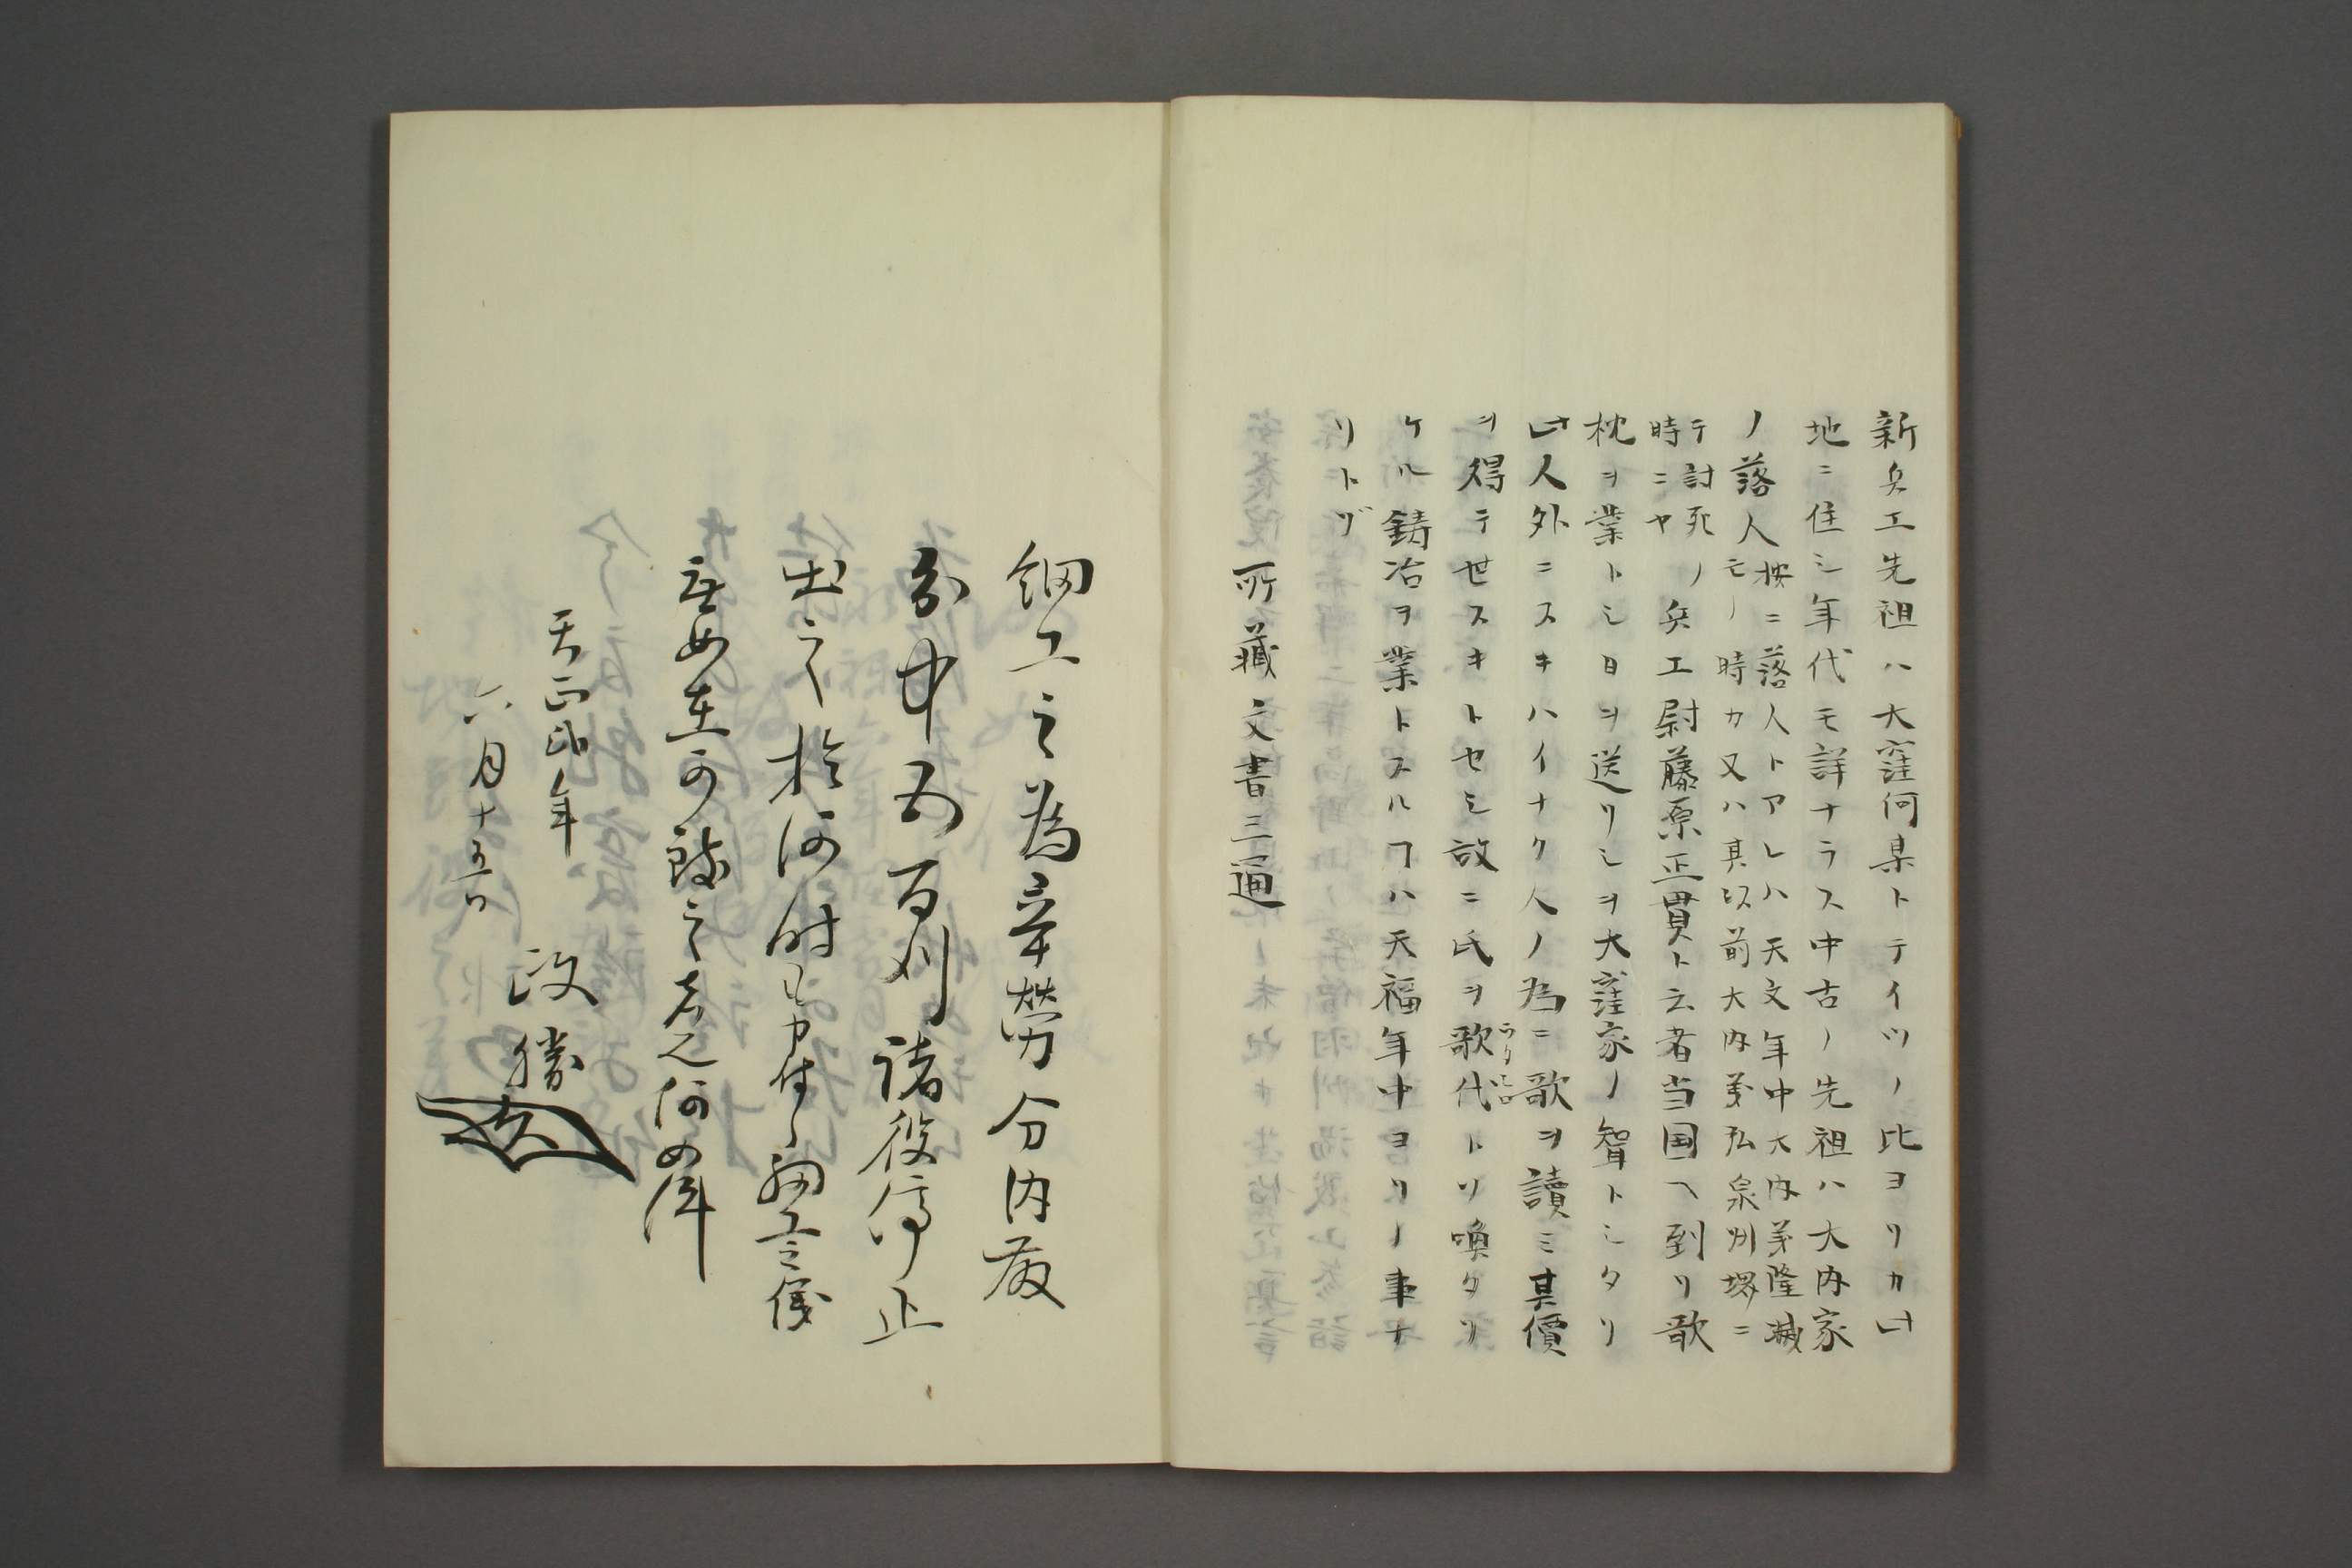 新兵エ先祖ハ大窪何某トテイツノ比ヨリカ此
地ニ住シ年代モ詳ナラス中古ノ先祖ハ大内家
ノ落人
按ニ落人トアレハ天文年中大内義隆滅
モノ時カ又ハ其以前大内義弘泉州堺ニ
テ討死ノ
時ニヤ
兵エ尉藤原正貫ト云者当国ヘ到リ歌
枕ヲ業トシ日ヲ送リシヲ大窪家ノ聟トシタリ
此人外ニスキハイナク人ノ為ニ歌ヲ讀ミ其價
ヲ得テ世スキトセシ故ニ氏ヲ歌代トソ喚タリ
ケル鋳冶ヲ業トスルヿハ天福年中ヨリノ事ナ
リトゾ
所藏文書三通
細工之為辛勞分内藪
分中五百刈諸役停止
出之於何時も申付ル細工之儀
無如在可致之者也仍如件
天正四年
六月十五日
政勝